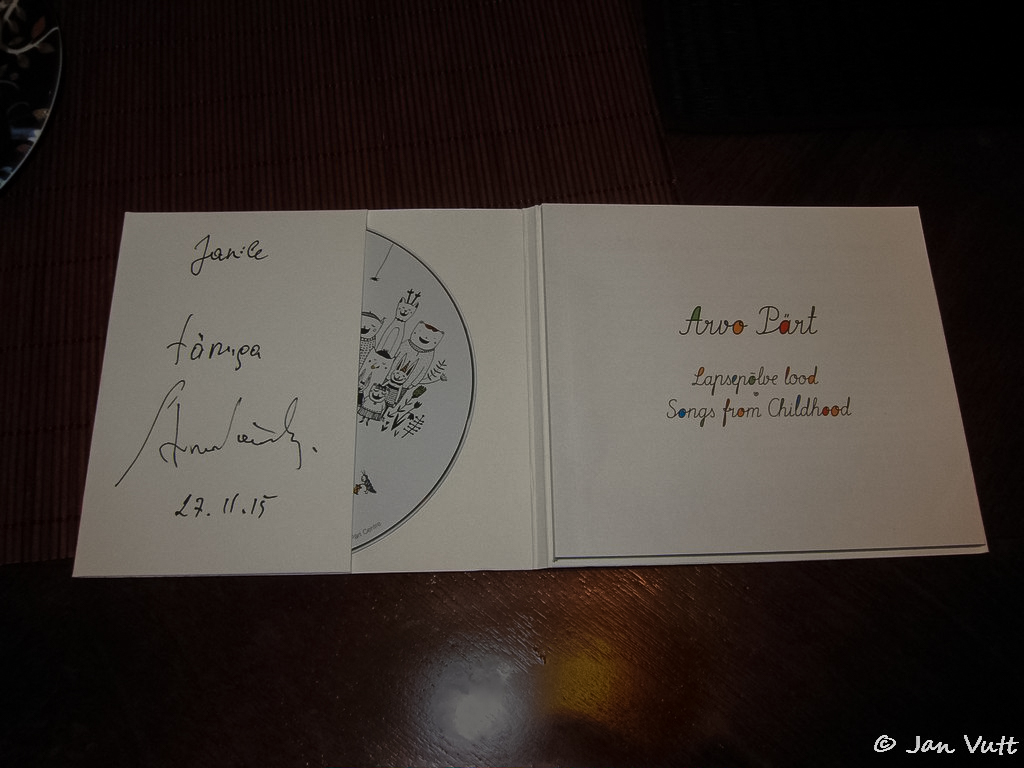 Janile
tänuga
Arvo Pärt
27.11.15
Arvo Pärt
Lapsepõlve lood
Songs from Childhood
Centre
© Jan Vutt